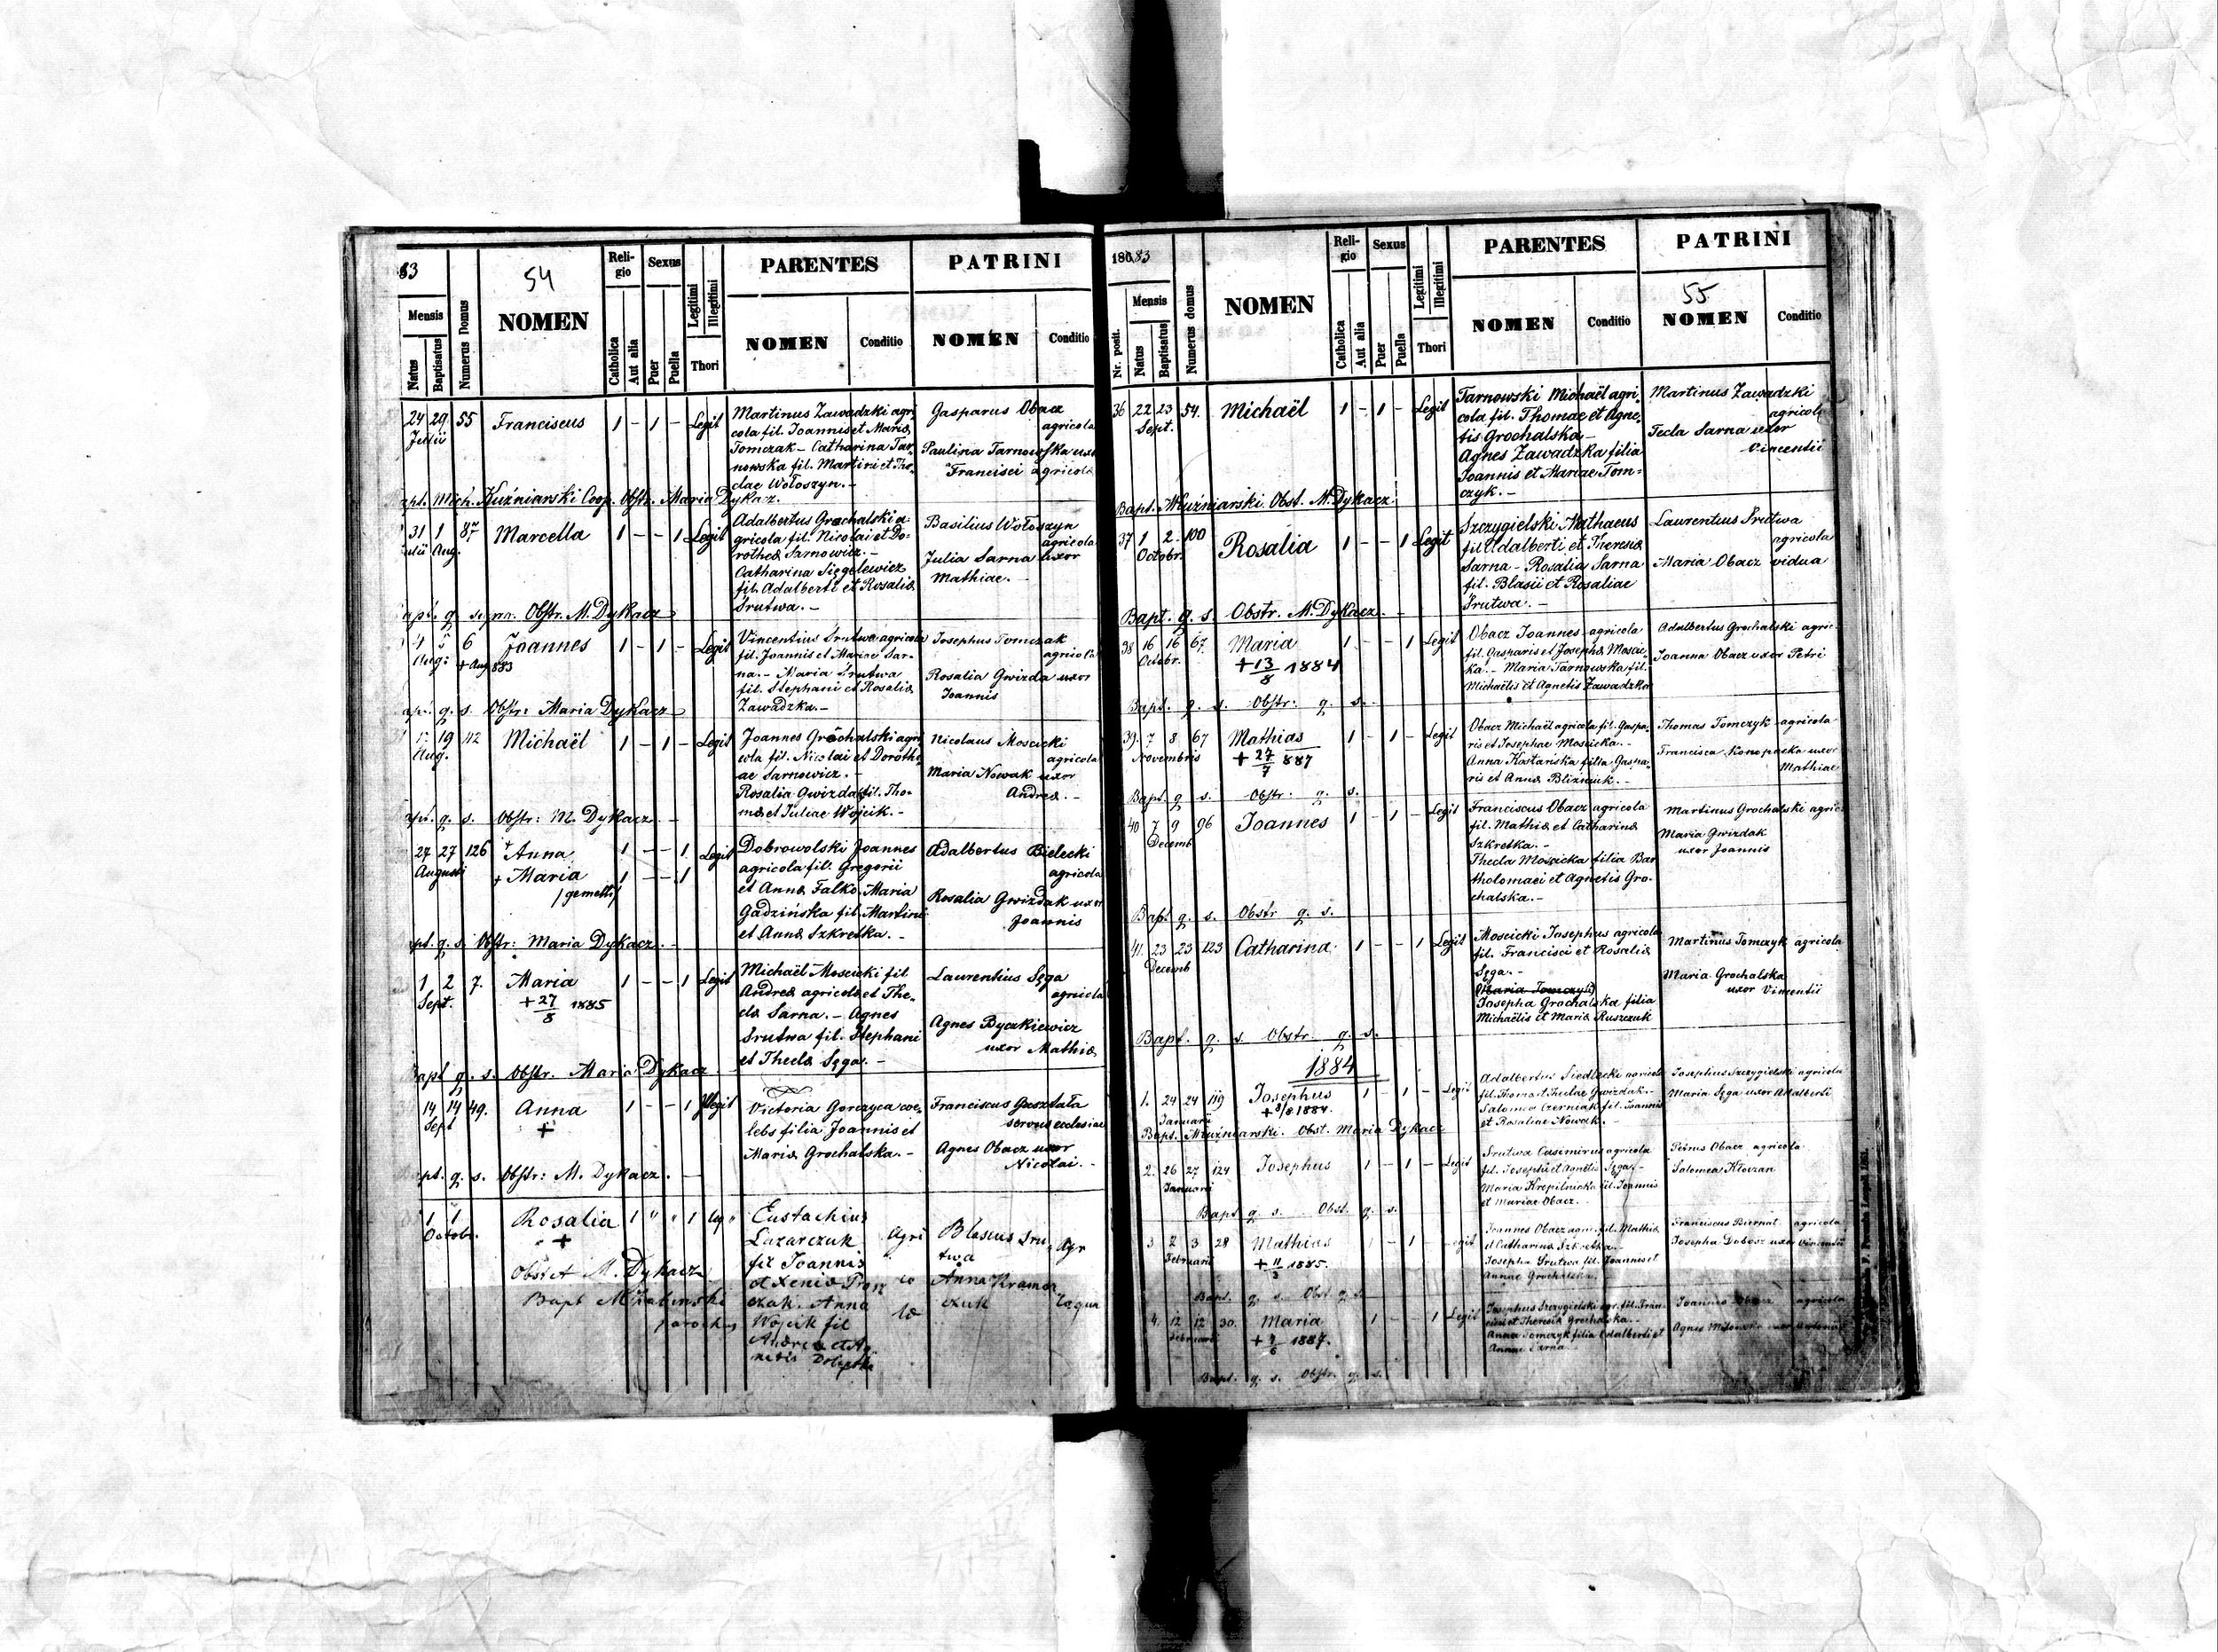 83
54
Mensis
Natus
Baptisatus
Numerus Domus
NOMEN
Reli-
gio
Catholica
Aut alia
Sexus
Puer
Puella
Legitimi
Illegitimi
Thori
PARENTES
NOMEN
Conditio
PATRINI
NOMEN
Conditio
24 29 55 Franciscus 1 - 1 - Legit
Julii
Martinus Zawadzki agri
cola fil. Joannis et Mariæ
Tomczak - Catharina Tar
nowska fil. Martini et The
clae Wołoszyn. -
Gasparus Obacz
agricola
Paulina Tarnowska uxor
Francisci agricolæ
Bapt. Mich. Kuźniarski Coop. Obstr. Maria Dykacz.
31 1 87 Marcella 1 - - 1 Legit
Julii Aug.
Adalbertus Grochalski a-
gricola fil. Nicolai et Do-
rotheæ Sarnowicz. -
Catharina Sięgelewicz
fil. Adalberti et Rosaliæ
Srutwa. -
Basilius Wołoszyn
agricola
Julia Sarna uxor
Mathiae. -
Bapt. q. supra. Obstr. M. Dykacz
6 Joannes 1 - 1 - Legit
Aug. + Aug 883
Vincentius Srutwa agricola
fil. Joannis et Mariae Sar-
na. - Maria Srutwa
fil. Stephani et Rosaliæ
Zawadzka. -
Josephus Tomczak
agricola
Rosalia Gwizda uxor
Joannis
Bapt. q. s. Obstr: Maria Dykacz
19 112 Michaël 1 - 1 - Legit
Aug.
Joannes Grochalski agri
cola fil. Nicolai et Dorothe
ae Sarnowicz. -
Rosalia Gwizdak fil. Tho-
mæ et Juliae Wojcik. -
Nicolaus Moscicki
agricola
Maria Nowak uxor
Andreæ. -
Bapt. q. s. Obstr: M. Dykacz -
27 27 126 + Anna 1 - - 1 Legit
Augusti + Maria 1 - - 1
/gemelli/
Dobrowolski Joannes
agricola fil. Gregorii
et Annæ Falko. Maria
Gadzińska fil. Martini
et Annæ Szkretka. -
Adalbertus Bielecki
agricola
Rosalia Gwizdak uxor
Joannis
Bapt. q. s. Obstr: Maria Dykacz. -
1 2 7. Maria 1 - - 1 Legit
Sept. + 27/8 1885
Michaël Moscicki fil
Andreæ agricolæ et The-
clæ Sarna. - Agnes
Srutwa fil. Stephani
et Theclæ Sęga. -
Laurentius Sęga
agricola
Agnes Byczkiewicz
uxor Mathiæ
Bapt q. s. Obstr. Maria Dykacz
14 14 49. Anna 1 - - 1 Illegit
Sept +
Victoria Gorczyca coe-
lebs filia Joannis et
Mariæ Grochalska. -
Franciscus Gaształa
servus ecclesiae
Agnes Obacz uxor
Nicolai. -
Bapt. q. s. Obstr: M. Dykacz. -
1 1 Rosalia 1 " " 1 leg"
Octobr. +
Obstet M. Dykacz
Bapt
parochus
Eustachius
Lazarczuk
fil Joannis
et Xeniæ
czak. Anna
Wojcik fil
Andreæ et Ag
netis
Agri
co
la
Blasius Sru
twa
Anna Kramar
czuk
Agr
1883
55
Nr. posit.
Mensis
Natus
Baptisatus
Numerus domus
NOMEN
Reli-
gio
Catholica
Aut alia
Sexus
Puer
Puella
Legitimi
Illegitimi
Thori
PARENTES
NOMEN
Conditio
PATRINI
NOMEN
Conditio
36 22 23 54. Michaël 1 - 1 - Legit
Sept.
Tarnowski Michaël agri
cola fil. Thomae et Agne
tis Grochalska -
Agnes Zawadzka filia
Joannis et Mariae Tom-
czyk. -
Martinus Zawadzki
agricola
Tecla Sarna uxor
Vincentii
Bapt. MKuźniarski Obst. M. Dykacz
37 1 2 100 Rosalia 1 - - 1 Legit
Octobr.
Szczygielski Mathaeus
fil Adalberti et Theresiæ
Sarna - Rosalia Sarna
fil. Blasii et Rosaliae
Srutwa. -
Laurentius Srutwa
agricola
Maria Obacz vidua
Bapt. q. s. Obstr. M. Dykacz. -
38 16 16 67. Maria 1 - - 1 Legit
Octobr. + 13/8 1884
Obacz Joannes agricola
fil. Gasparis et Josephæ Moscic
ka. - Maria Tarnowska fil.
Michaëlis et Agnetis Zawadzka
Adalbertus Grochalski agric.
Joanna Obacz uxor Petri
Bapt. q. s. Obstr: q. s.
39. 7 8 67 Mathias 1 - 1 - Legit
Novembris + 27/7 887
Obacz Michaël agricola fil. Gaspa-
ris et Josephae Moscicka. -
Anna Kostańska filia Gaspa-
ris et Annæ Bliźniuk. -
Thomas Tomczyk agricola
Francisca Konopacka uxor
Mathiae
Bapt. q. s. Obstr: q. s.
40 7 9 96 Joannes 1 - 1 - Legit
Decemb
Franciscus Obacz agricola
fil. Mathiæ et Catharinæ
Szkretka. -
Thecla Moscicka filia Bar
tholomaei et Agnetis Gro-
chalska. -
Martinus Grochalski agric.
Maria Gwizdak
uxor Joannis
Bapt q. s. Obstr q. s.
41. 23 23 123 Catharina 1 - - 1 Legit
Decemb
Moscicki Josephus agricola
fil. Francisci et Rosaliæ
Sęga. -
Maria Tomczyk
Josepha Grochalska filia
Michaëlis et Mariæ Ruszczuk
Martinus Tomczyk agricola
Maria Grochalska
uxor Vincentii
Bapt. q. s. Obstr. q. s.
1884
1. 24 24 119 Josephus 1 - 1 - Legit
Januarii + 3/8 1884.
Adalbertus Siedlecki agricola
fil. Thomæ et Theclae Gwizdak. -
Salomea Czerniak fil. Joannis
et Rosaliae Nowak. -
Josephus Szczygielski agricola
Maria Sęga uxor Adalberti
Bapt. MKuźniarski. Obst. Maria Dykacz
2. 26 27 124 Josephus 1 - 1 - Legit
Januarii
Srutwa Casimirus agricola
fil. Josephi et Agnetis Sęga. -
Maria Krepilnicka fil. Joannis
et Mariae Obacz. -
Petrus Obacz agricola
Salomea
Bapt q. s. Obst. q. s.
3 2 3 28 Mathias 1 - 1 - Legit
Februarii + 11/3 1885.
Joannes Obacz agric. fil. Mathiæ
et Catharinæ Szkretka. -
Josepha Srutwa fil. Joannis et
Annae Grochalska.
Franciscus Biernat agricola
Josepha Dobosz uxor Vincentii
Bapt. q. s. Obst q. s.
4. 12 12 30. Maria 1 - - 1 Legit
Februarii + 1887.
Josephus Szczygielski agr. fil. Fran-
cisci et Theresiæ Grochalska. -
Anna Tomczyk filia Adalberti et
Annae Sarna.
Joannes Obacz agricola
Agnes uxor
Bapt. q. s. Obstr. q. s.